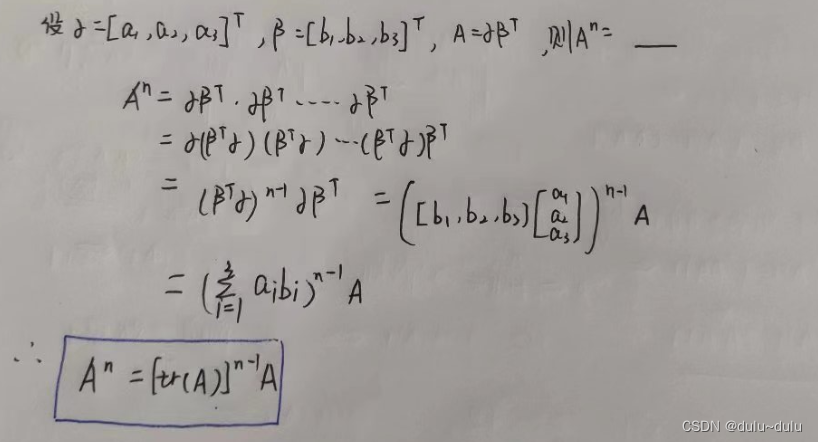 设α=[a₁,a₂,a₃]ᵀ,β=[b₁,b₂,b₃]ᵀ,A=αβᵀ,则Aⁿ=___
Aⁿ=αβᵀ·αβᵀ·····αβᵀ
=α(βᵀα)(βᵀα)···(βᵀα)βᵀ
=(βᵀα)ⁿ⁻¹αβᵀ=([b₁,b₂,b₃][a₁ a₂ a₃])ⁿ⁻¹A
=(∑³ᵢ₌₁aᵢbᵢ)ⁿ⁻¹A
∴ Aⁿ=[tr(A)]ⁿ⁻¹A
CSDN @dulu~dulu